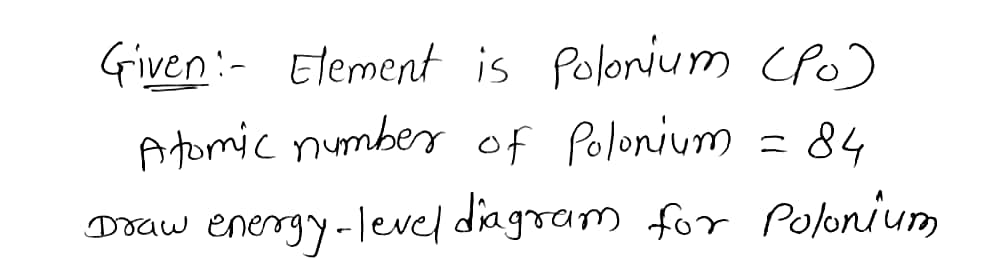 Given:- Element is Polonium (Po)
Atomic number of Polonium = 84
Draw energy-level diagram for Polonium